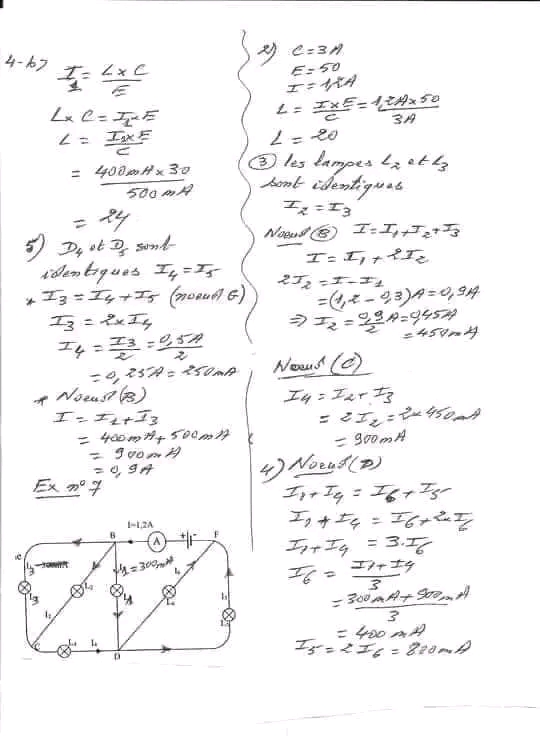 4-b)
I1 = L x C / E
L x C = I1 x E
L = I1 x E / C
= 400mA x 30 / 500mA
= 24
5) D4 et D5 sont
identiques I4 = I5
* I3 = I4 + I5 (noeud G)
I3 = 2 x I4
I4 = I3/2 = 0,5A/2
= 0,25A = 250mA
* Noeud (B)
I = I1 + I3
= 400mA + 500mA
= 900mA
= 0,9A
Ex n° 7
I=1,2A
B
A
+ -
F
I1 = 300mA
I3
L3
L2
I2
L1
C
L4
I4
D
2) C = 3A
E = 50
I = 1,2A
L = I x E / C = 1,2A x 50 / 3A
L = 20
③ les lampes L2 et L3
sont identiques
I2 = I3
Noeud (B) I = I1 + I2 + I3
I = I1 + 2I2
2I2 = I - I1
= (1,2 - 0,3)A = 0,9A
=> I2 = 0,9/2 A = 0,45A
= 450mA
Noeud (C)
I4 = I2 + I3
= 2I2 = 2 x 450mA
= 900mA
4) Noeud (D)
I1 + I4 = I6 + I5
I1 + I4 = I6 + 2 x I6
I1 + I4 = 3.I6
I6 = I1 + I4 / 3
= 300mA + 900mA / 3
= 400mA
I5 = 2I6 = 800mA